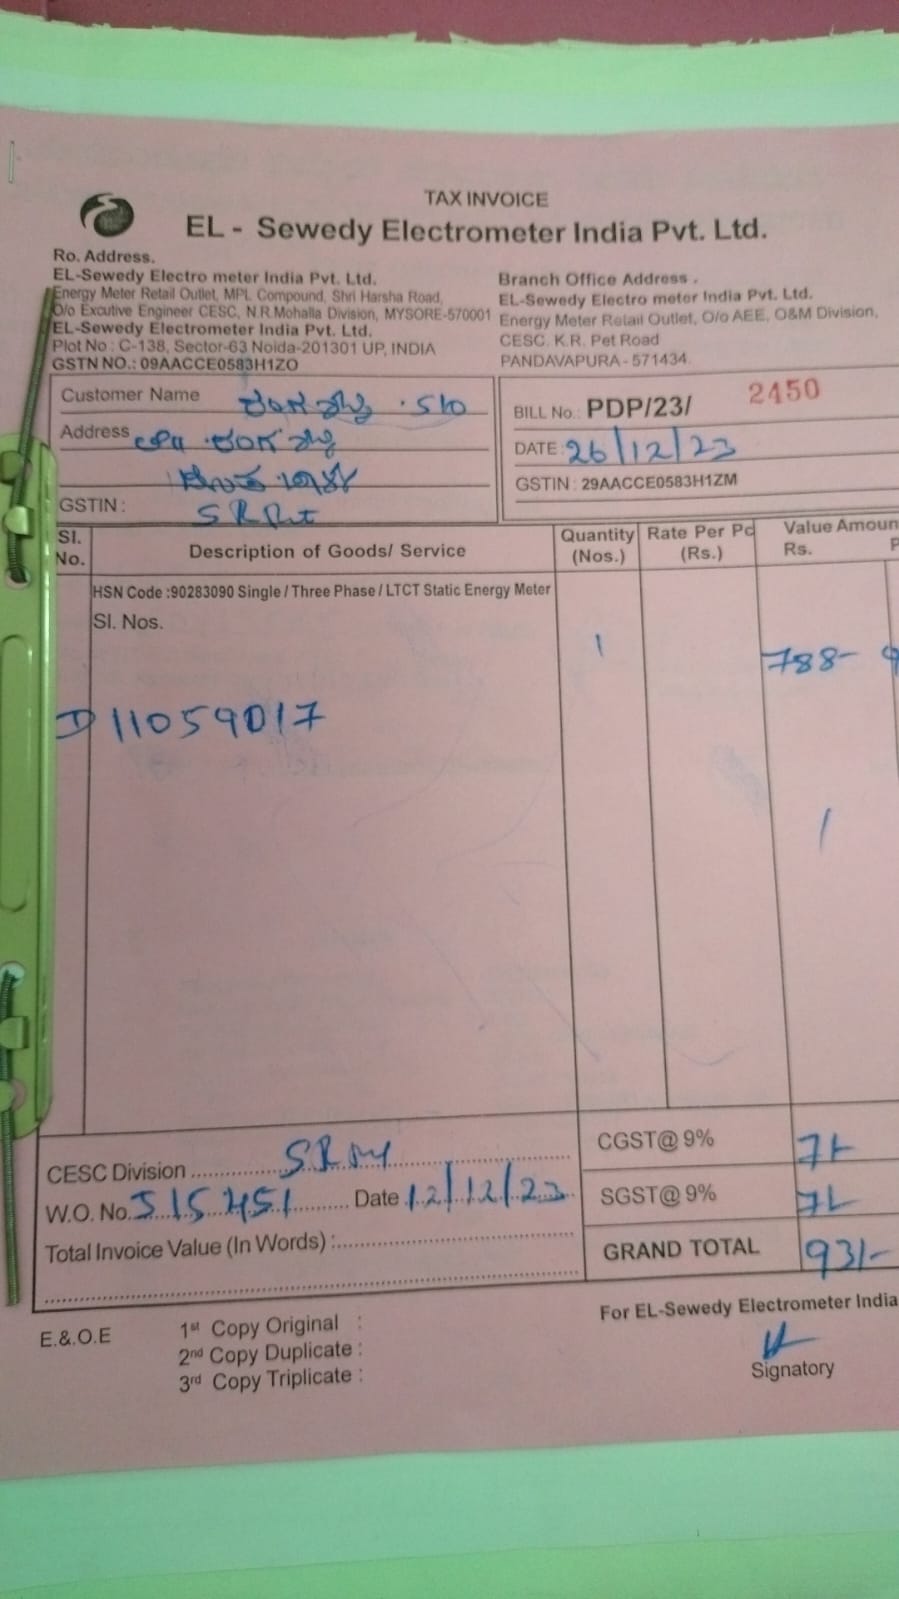 TAX INVOICE
EL - Sewedy Electrometer India Pvt. Ltd.
Ro. Address.
EL-Sewedy Electro meter India Pvt. Ltd.
Energy Meter Retail Outlet, MPL Compound, Shri Harsha Road,
O/o Excutive Engineer CESC, N.R.Mohalla Division, MYSORE-570001
EL-Sewedy Electrometer India Pvt. Ltd.
Plot No : C-138, Sector-63 Noida-201301 UP, INDIA
GSTN NO.: 09AACCE0583H1ZO
Branch Office Address .
EL-Sewedy Electro meter India Pvt. Ltd.
Energy Meter Retail Outlet, O/o AEE, O&M Division,
CESC. K.R. Pet Road
PANDAVAPURA - 571434.
Customer Name S/O
Address
GSTIN :
BILL No.: PDP/23/ 2450
DATE : 26/12/23
GSTIN : 29AACCE0583H1ZM
Sl. No. Description of Goods/ Service Quantity (Nos.) Rate Per Pc (Rs.) Value Amoun Rs. P
HSN Code :90283090 Single / Three Phase / LTCT Static Energy Meter
Sl. Nos.
1 788-
D11059017
CESC Division
W.O. No. 515451 Date 12/12/23
Total Invoice Value (In Words) :
CGST@ 9% 71
SGST@ 9% 71
GRAND TOTAL 931/-
E.&.O.E
1st Copy Original :
2nd Copy Duplicate :
3rd Copy Triplicate :
For EL-Sewedy Electrometer India
Signatory